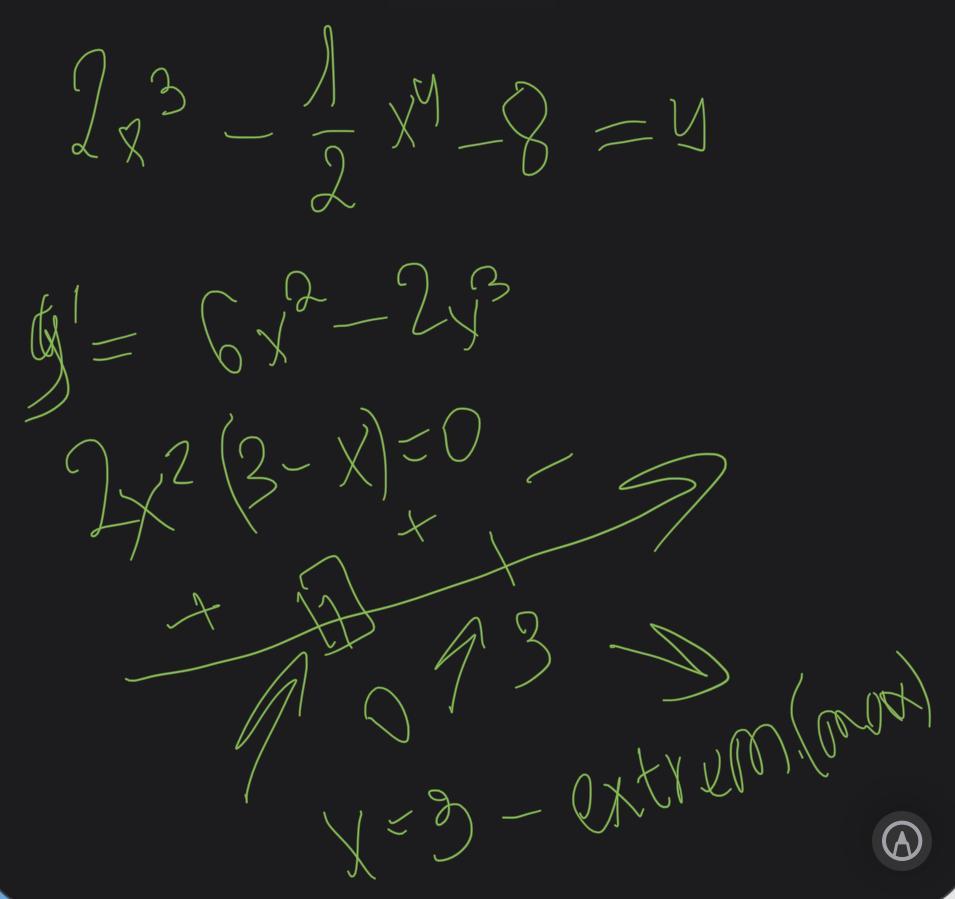 2x³ - 1/2 x⁴ - 8 = y
y' = 6x² - 2x³
2x²(3 - x) = 0
+ + -
0 3
x = 3 - extrem(max)